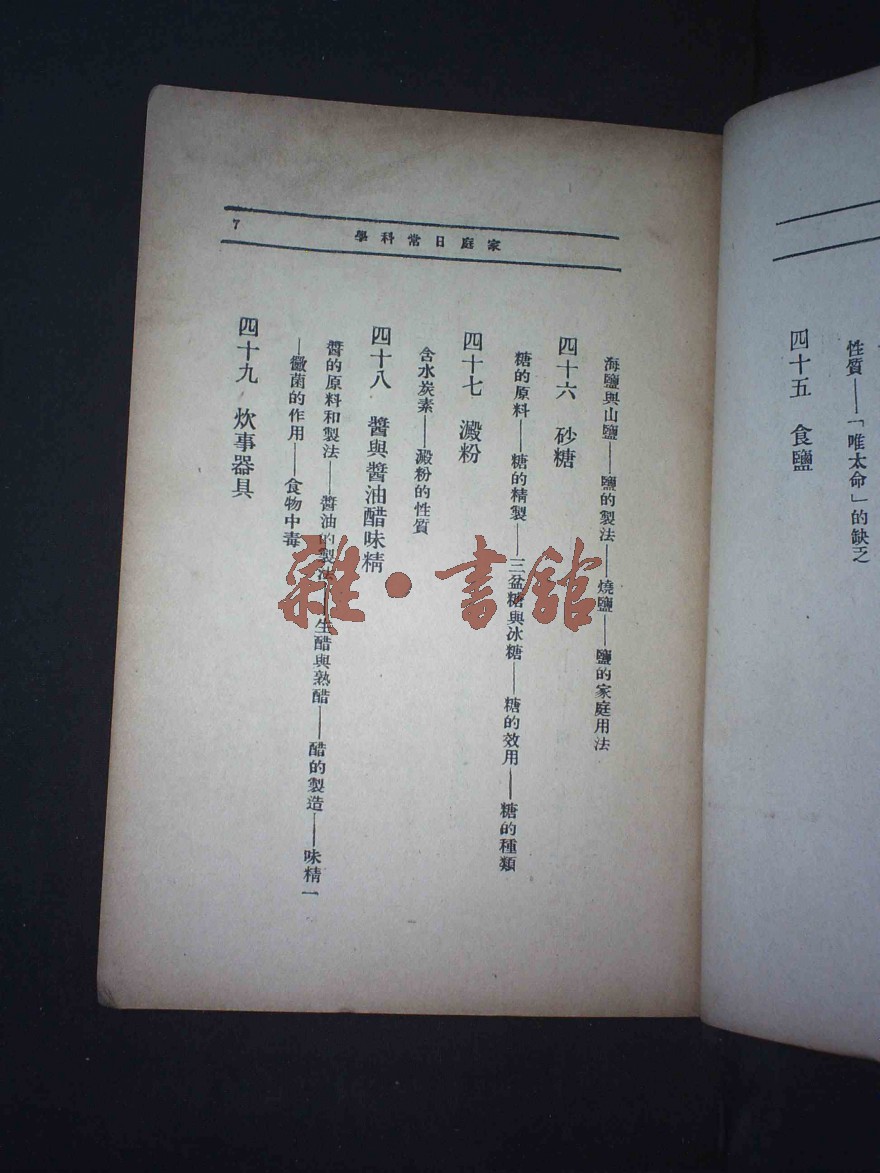 性質——「唯太命」的缺乏
四十五　食鹽
家庭日常科學
7
海鹽與山鹽——鹽的製法——燒鹽——鹽的家庭用法
四十六　砂糖
糖的原料——糖的精製——三盆糖與冰糖——糖的效用——糖的種類
四十七　澱粉
含水炭素——澱粉的性質
四十八　醬與醬油醋味精
醬的原料和製法——醬油的製法——生醋與熟醋——醋的製造——味精—
—黴菌的作用——食物中毒
四十九　炊事器具
雜·書館